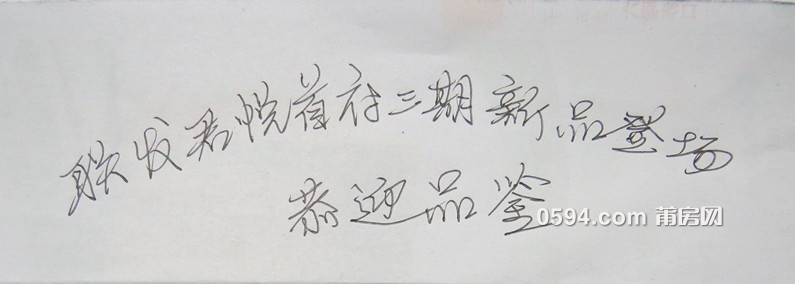 联发君悦首府三期新品登场
恭迎品鉴
0594.com 莆房网